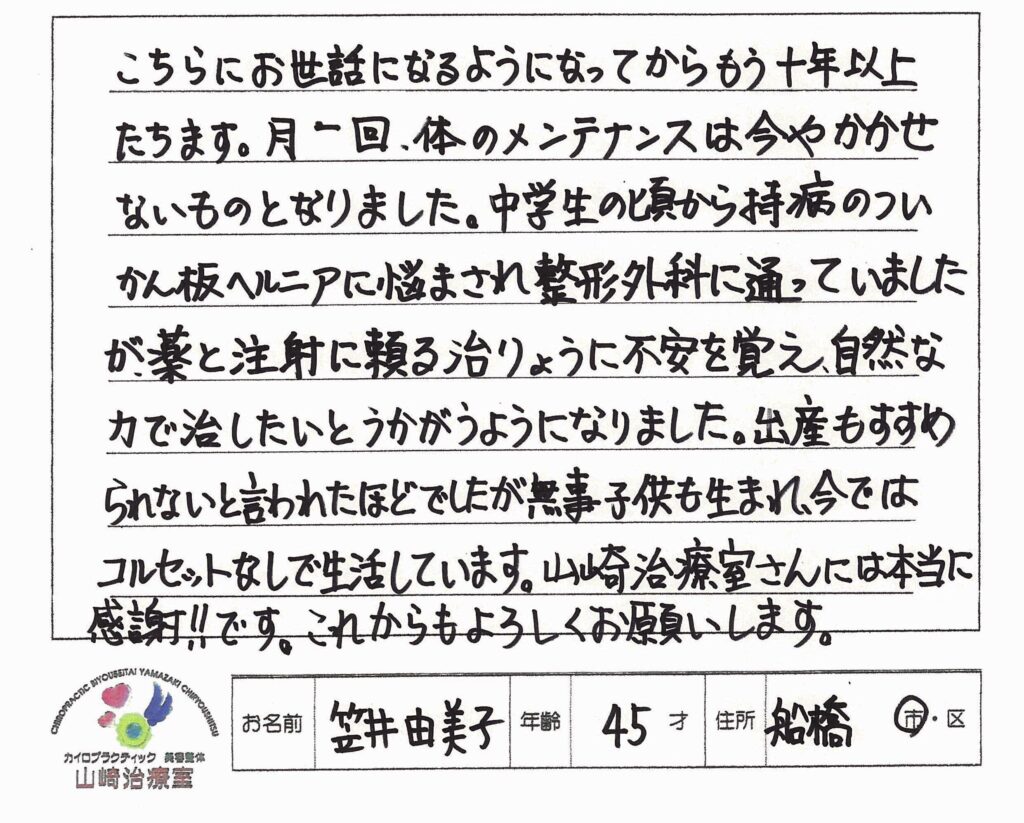 こちらにお世話になるようになってからもう十年以上
たちます。月一回、体のメンテナンスは今やかかせ
ないものとなりました。中学生の頃から持病のつい
かん板ヘルニアに悩まされ整形外科に通っていました
が、薬と注射に頼る治りょうに不安を覚え、自然な
力で治したいとうかがうようになりました。出産もすすめ
られないと言われたほどでしたが無事子供も生まれ、今では
コルセットなしで生活しています。山崎治療室さんには本当に
感謝!!です。これからもよろしくお願いします。
CHIROPRACTIC BIYOUSEITAI YAMAZAKI CHIRYOUSHITSU
カイロプラクティック 美容整体
山崎治療室
お名前 笠井由美子 年齢 45 才 住所 船橋 市・区